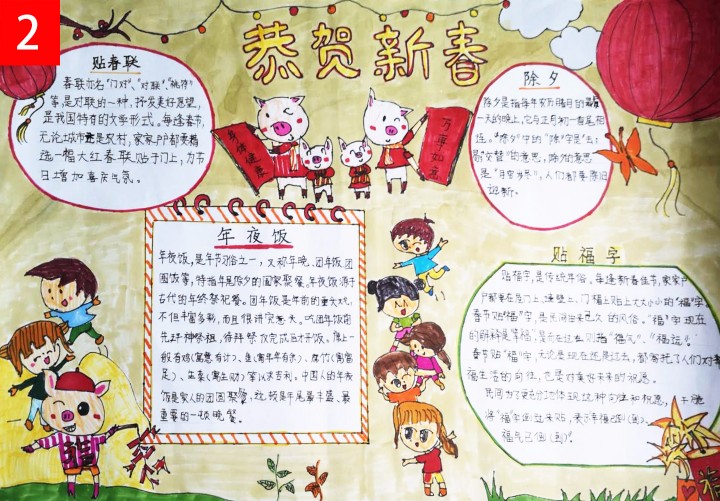 2
恭贺新春
贴春联
春联亦名"门对"、"对联"、"桃符"
等,是对联的一种,抒发美好愿望,
是我国特有的文学形式。每逢春节,
无论城市还是农村,家家户户都要精
选一幅大红春联贴于门上,为节
日增加喜庆气氛。
身体健康
万事如意
除夕
除夕是指每年农历腊月的最后
一天的晚上,它与正月初一首尾相
连。"除夕"中的"除"字是"去;
易;交替"的意思,除夕的意思
是"月穷岁尽",人们都要除旧
迎新。
年夜饭
年夜饭,是年节习俗之一,又称年晚、团年饭、团
圆饭等,特指年尾除夕的阖家聚餐。年夜饭源于
古代的年终祭祀餐。团年饭是年前的重大戏,
不但丰富多彩,而且很讲究意头。吃团年饭前
先拜神祭祖,待拜祭仪完成后才开饭。席上一
般有鸡(寓意有计)、鱼(寓年年有余)、腐竹(寓富
足)、生菜(寓生财)等以求吉利。中国人的年夜
饭是家人的团圆聚餐,这顿是年尾最丰盛、最
重要的一顿晚餐。
贴福字
贴"福"字,是传统年俗。每逢新春佳节,家家户
户都要在屋门上、墙壁上、门楣上贴上大大小小的"福"字。
春节贴"福"字,是民间由来已久的风俗。"福"字现在
的解释是"幸福",而在过去则指"福气"、"福运"。
春节贴"福"字,无论是现在还是过去,都寄托了人们对幸
福生活的向往,也是对美好未来的祝愿。
民间为了更充分地体现这种向往和祝愿,干脆
将"福"字倒过来贴,表示幸福已倒(到)、
福气已倒(到)!